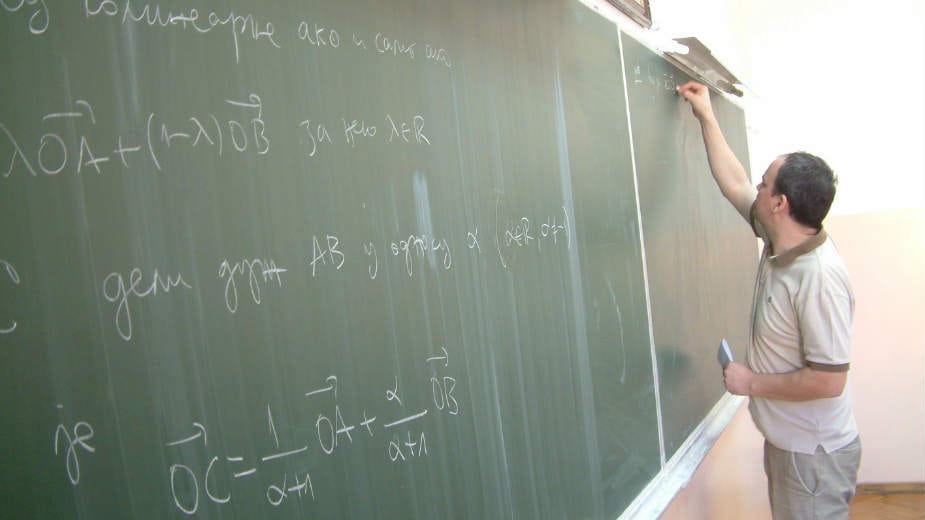 колинеарне ако и само ако
λOA + (1-λ)OB за неко λ∈R
дели дуж AB у односу α (α∈R
је OC = 1/(α+1) OA + α/(α+1) OB